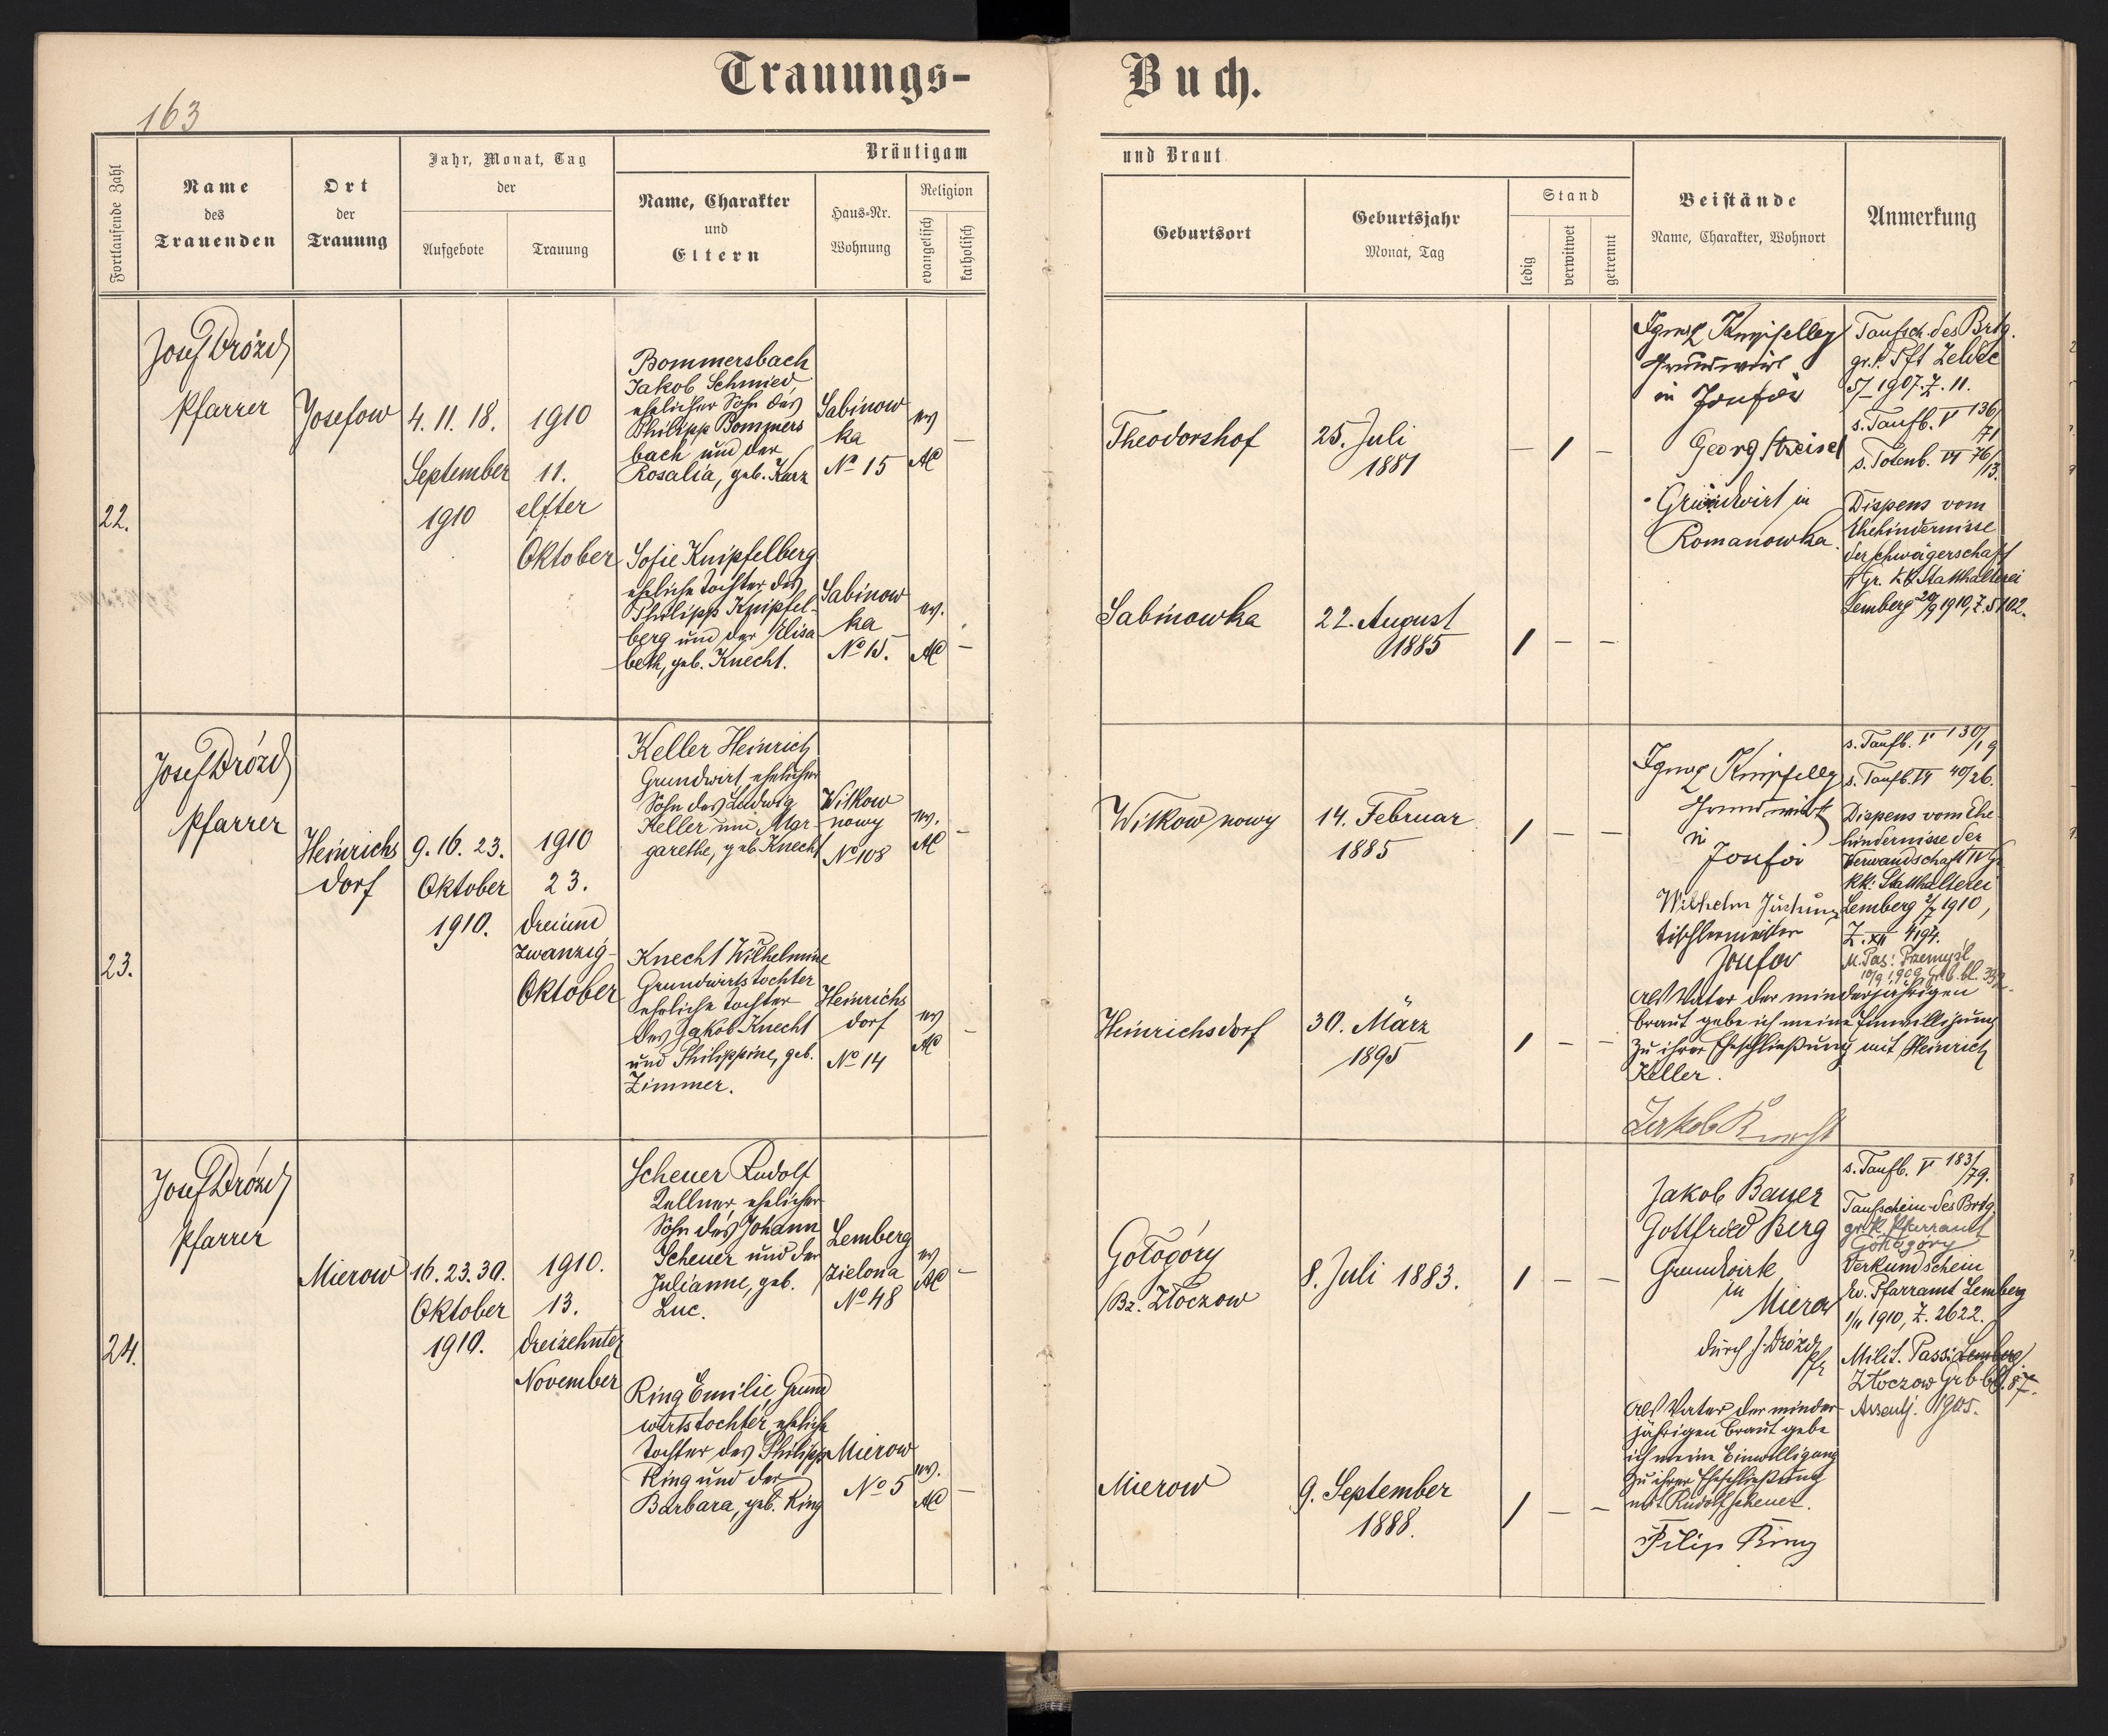 Trauungs-
Buch.
163
Fortlaufende Zahl
Name
des
Trauenden
Ort
der
Trauung
Jahr, Monat, Tag
der
Aufgebote
Trauung
Bräutigam
Name, Charakter
und
Eltern
Haus-Nr.
Wohnung
Religion
evangelisch
katholisch
und Braut
Geburtsort
Geburtsjahr
Monat, Tag
Stand
ledig
verwitwet
getrennt
Beistände
Name, Charakter, Wohnort
Anmerkung
22.
Josef Drózd
Pfarrer
Josefow
4. 11. 18.
September
1910
1910
11.
elfter
Oktober
Bommersbach
Jakob, Schmied,
ehelicher Sohn des
Philipp Bommers
bach und der
Rosalia, geb. Kurz
Sabinow
ka
No 15
ev
AC
—
Theodorshof
25. Juli
1881
— / —
Sofie Knipfelberg
eheliche Tochter des
Philipp Knipfel-
berg und der Elisa
beth, geb. Knecht.
Sabinow
ka
No 15.
ev.
AC
—
Sabinowka
22. August
1885
/ — —
Grundwirt
in
Georg Streisel
Grundwirt in
Romanowka.
Taufsch. des Brtg.
5/1 1907. Z. 11.
s. Taufb. V 136/71
s. Totenb. VI 76/13.
Dispens vom
Ehehindernisse
der Schwägerschaft
Gr. kk Statthalterei
Lemberg 20/9 1910, Z. 5102.
23.
Josef Drózd
Pfarrer
Heinrichs
dorf
9. 16. 23.
Oktober
1910.
1910
23.
dreiund
zwanzig-
Oktober
Keller Heinrich
Grundwirt, ehelicher
Sohn des Ludwig
Keller und Mar-
garethe, geb. Knecht
Witkow
nowy
No 108
ev.
AC
—
Witkow nowy
14. Februar
1885
/ — —
Knecht Wilhelmine
Grundwirtstochter
eheliche Tochter
des Jakob Knecht
und Philippine, geb.
Zimmer.
Heinrichs
dorf
No 14
ev
AC
—
Heinrichsdorf
30. März
1895
/ — —
Grundwirt
in
Wilhelm
Tischlermeister
Josefow
s. Taufb. V 130/19
s. Taufb. VI 40/26.
Dispens vom Ehe-
hindernisse der
Verwandschaft IV Gr
kk: Statthalterei
Lemberg 1910,
M. Pas: Przemyśl
Als Vater der minderjährigen
Braut gebe ich meine Einwilligung
zu ihrer Eheschließung mit Heinrich
Keller.
Jakob Knecht
24.
Josef Drózd
Pfarrer
Mierow
16. 23. 30.
Oktober
1910.
1910.
13.
dreizehnter
November
Scheuer Rudolf
Kellner, ehelicher
Sohn des Johann
Scheuer und der
Julianne, geb.
Luc.
Lemberg
Zielona
No 48
ev
AC
—
Gołogóry
Bz. Złoczow
8. Juli 1883.
/ — —
Ring Emilie, Grund
wirtstochter, eheliche
Tochter des Philipp
Ring und der
Barbara, geb. Ring
Mierow
No 5
ev.
AC
—
Mierow
9. September
1888.
/ — —
Jakob Bauer
Gottfried Berg
Grundwirte
in
Mierow
durch J. Drozd
Pfr
Als Vater der minder-
jährigen Braut gebe
ich meine Einwilligung
zu ihrer Eheschließung
mit Rudolf Scheuer.
Filip Ring
s. Taufb. V 183/79.
Taufschein des Brtg.
gr. k. Pfarramt
Gołogóry
Verkundschein
Ev. Pfarramt Lemberg
1/11 1910, Z. 2622.
Milit. Pass: Lemberg
Złoczow Grbbl. 87.
Assentj. 1905.